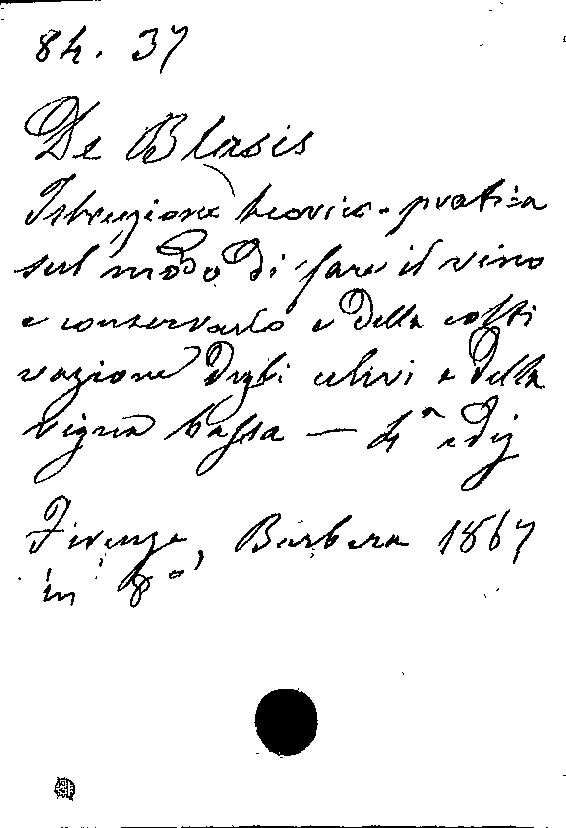 84. 37
De Blasis
Istruzione teorico-pratica
sul modo di fare il vino
e conservarlo e della colti
vazione degli ulivi e della
vigna bassa — 4ª ediz
Firenze, Barbera 1867
in 8º